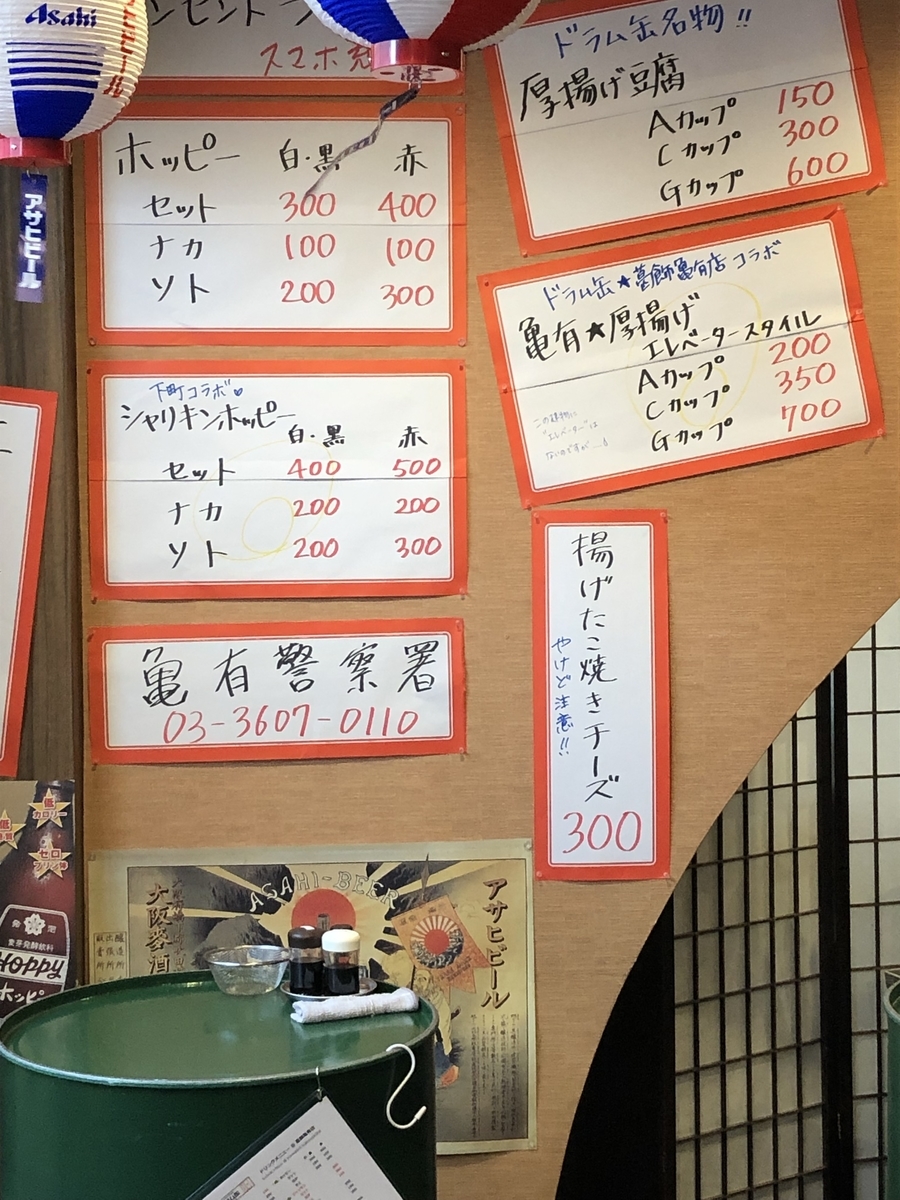 Asahi
アサヒビール
スマホ充
ホッピー 白・黒 赤
セット 300 400
ナカ 100 100
ソト 200 300
下町コラボ♡
シャリキンホッピー
白・黒 赤
セット 400 500
ナカ 200 200
ソト 200 300
亀有警察署
03-3607-0110
ドラム缶名物!!
厚揚げ豆腐
Aカップ 150
Cカップ 300
Gカップ 600
ドラム缶★葛飾亀有店 コラボ
亀有★厚揚げ
エレベータースタイル
Aカップ 200
Cカップ 350
Gカップ 700
この建物に
"エレベーター"は
ないのですが
揚げたこ焼きチーズ
やけど注意!!
300
低カロリー
ゼロ
プリン体
発泡
麦芽発酵飲料
Hoppy
ホッピ
ASAHI-BEER
アサヒビール
大阪麥酒